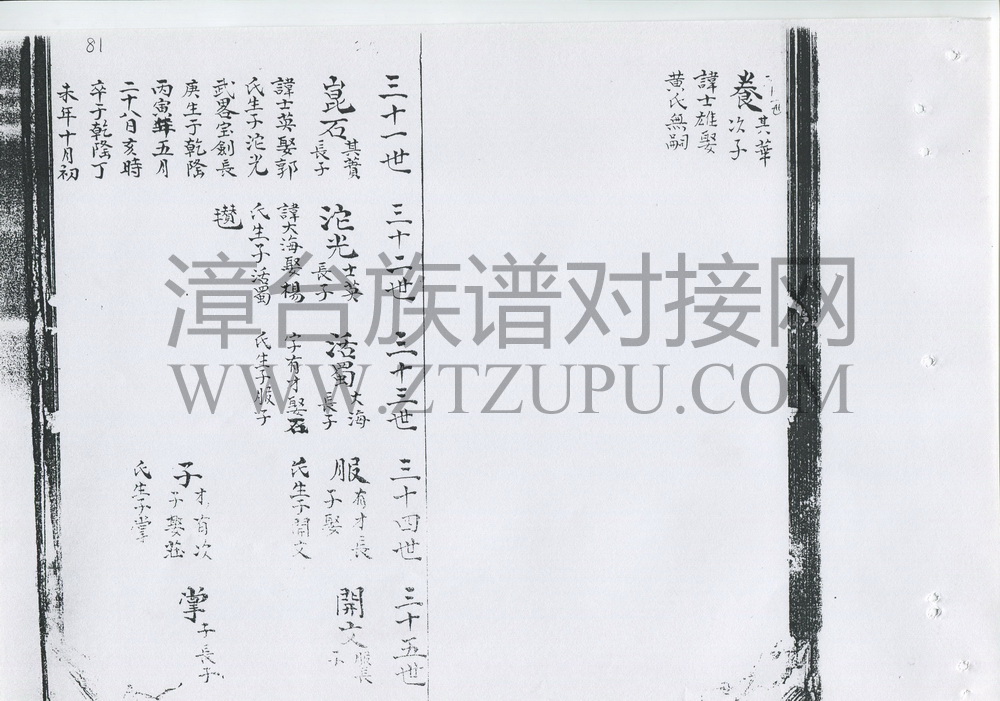 81
養 其華
次子
諱士雄娶
黄氏無嗣
三十一世
崑石 其賓
長子
諱士英娶郭
氏生子沱光
武畧宝劍長
庚生于乾隆
丙寅年五月
二十八日亥時
卒于乾隆丁
未年十月初
三十二世
沱光 士英
長子
諱大海娶楊
氏生子活蜀
三十三世
活蜀 大海
長子
字有才娶石
氏生子服子
三十四世
服 有才長
子娶
氏生子開文
子 有才次
子娶莊
氏生子掌
三十五世
開文 服長
子
掌 子長子
漳台族谱对接网
WWW.ZTZUPU.COM